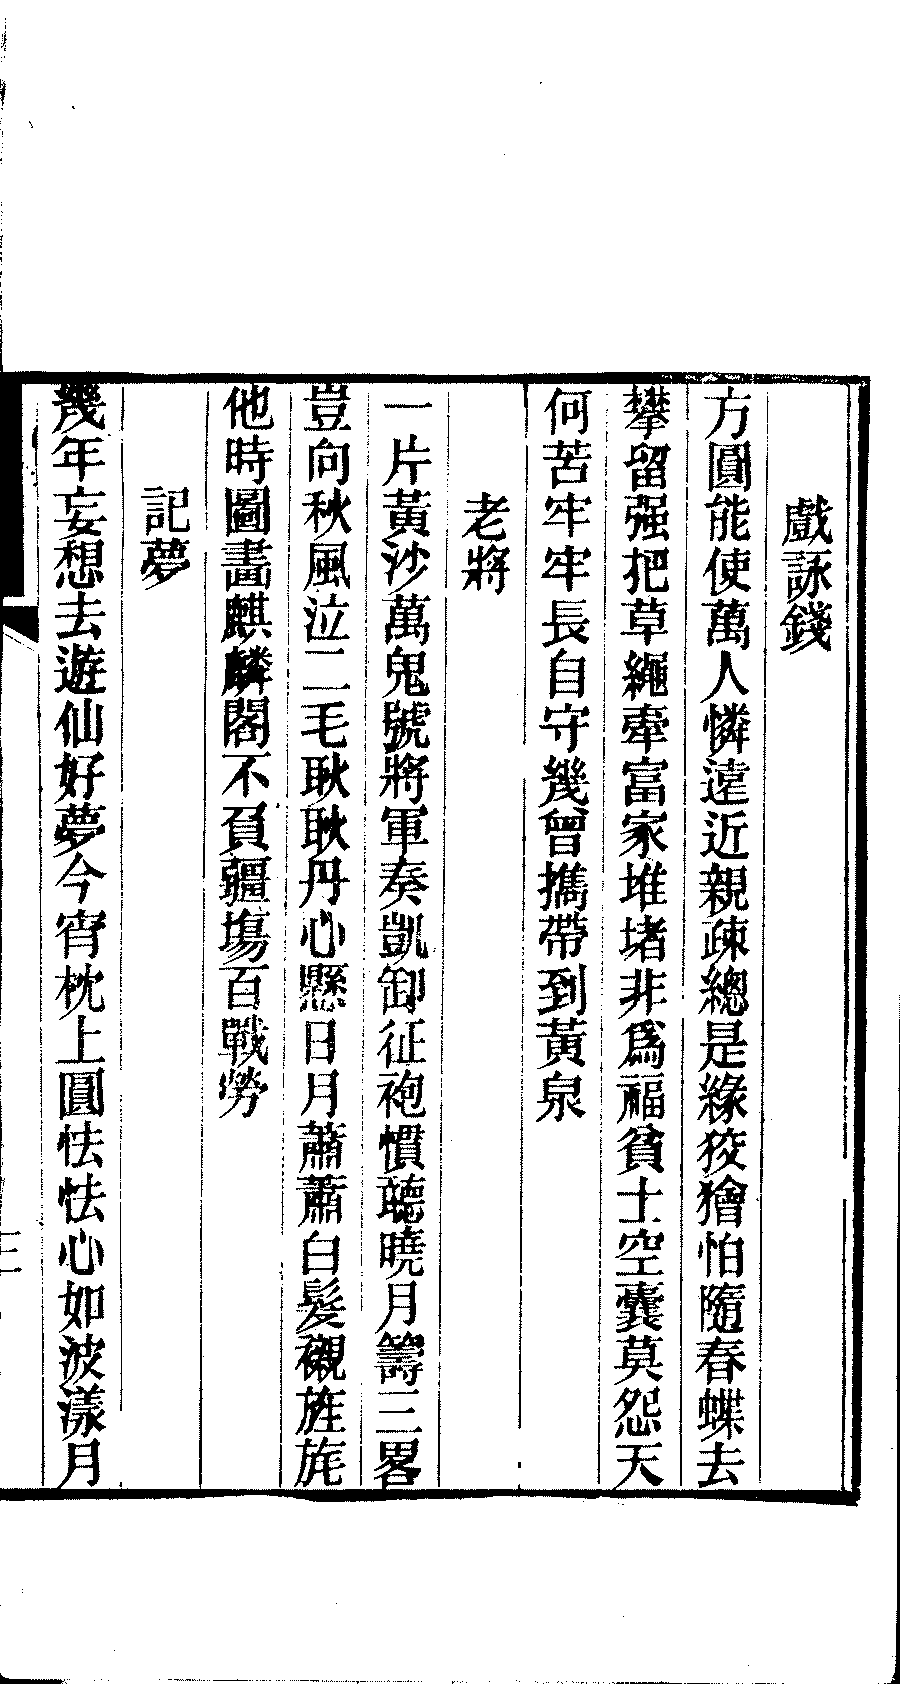 戲詠錢
方圓能使萬人憐遠近親疎總是緣狡獪怕隨春蝶去
攀留强把草繩牽富家堆堵非爲福貧士空囊莫怨天
何苦牢牢長自守幾曾攜帶到黃泉
老將
一片黃沙萬鬼號將軍奏凱卸征袍慣聽曉月籌三畧
豈向秋風泣二毛耿耿丹心懸日月蕭蕭白髮襯旌旄
他時圖畵麒麟閣不負疆塲百戰勞
記夢
幾年妄想去遊仙好夢今宵枕上圓怯怯心如波漾月